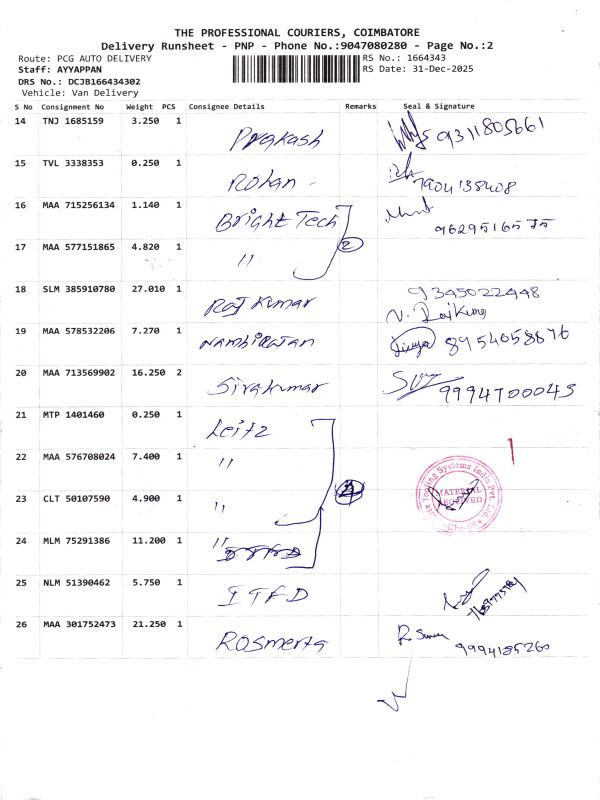 THE PROFESSIONAL COURIERS, COIMBATORE
Delivery Runsheet - PNP - Phone No.:9047080280 - Page No.:2
Route: PCG AUTO DELIVERY RS No.: 1664343
Staff: AYYAPPAN RS Date: 31-Dec-2025
DRS No.: DCJB166434302
Vehicle: Van Delivery
S No Consignment No Weight PCS Consignee Details Remarks Seal & Signature
14 TNJ 1685159 3.250 1 Prakash 9311805661
15 TVL 3338353 0.250 1 Rohan 7904138408
16 MAA 715256134 1.140 1 Bright Tech 9629516575
17 MAA 577151865 4.820 1 " 2
18 SLM 385910780 27.010 1 Raj Kumar 9345022448
N. Raj Kumar
19 MAA 578532206 7.270 1 Nambirajan Divya 8954058676
20 MAA 713569902 16.250 2 Sivakumar 9994700045
21 MTP 1401460 0.250 1 Leitz
22 MAA 576708024 7.400 1 "
23 CLT 50107590 4.900 1 " MATERIAL RECEIVED
Tooling Systems India Pvt. Ltd.
24 MLM 75291386 11.200 1 "
25 NLM 51390462 5.750 1 ITFD
26 MAA 301752473 21.250 1 Rosmerta 9994185260